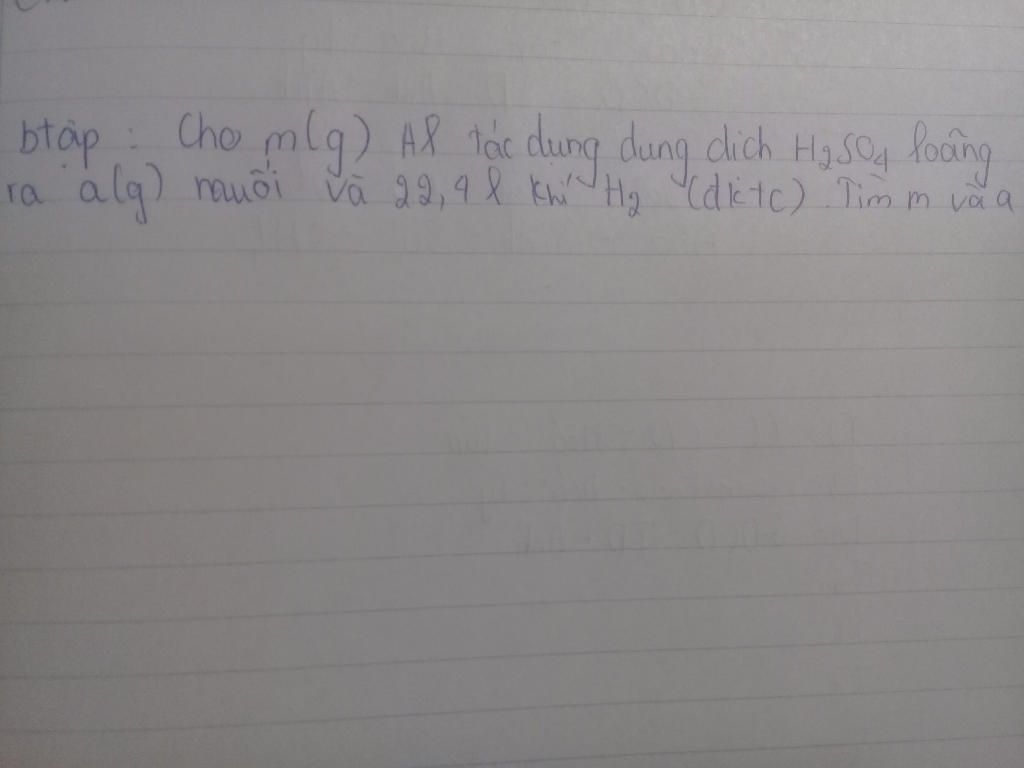 btập : Cho m(g) Al tác dụng dung dich H₂SO₄ loãng
ra a(g) muối và 22,4 l khí H₂ (đktc). Tìm m và a